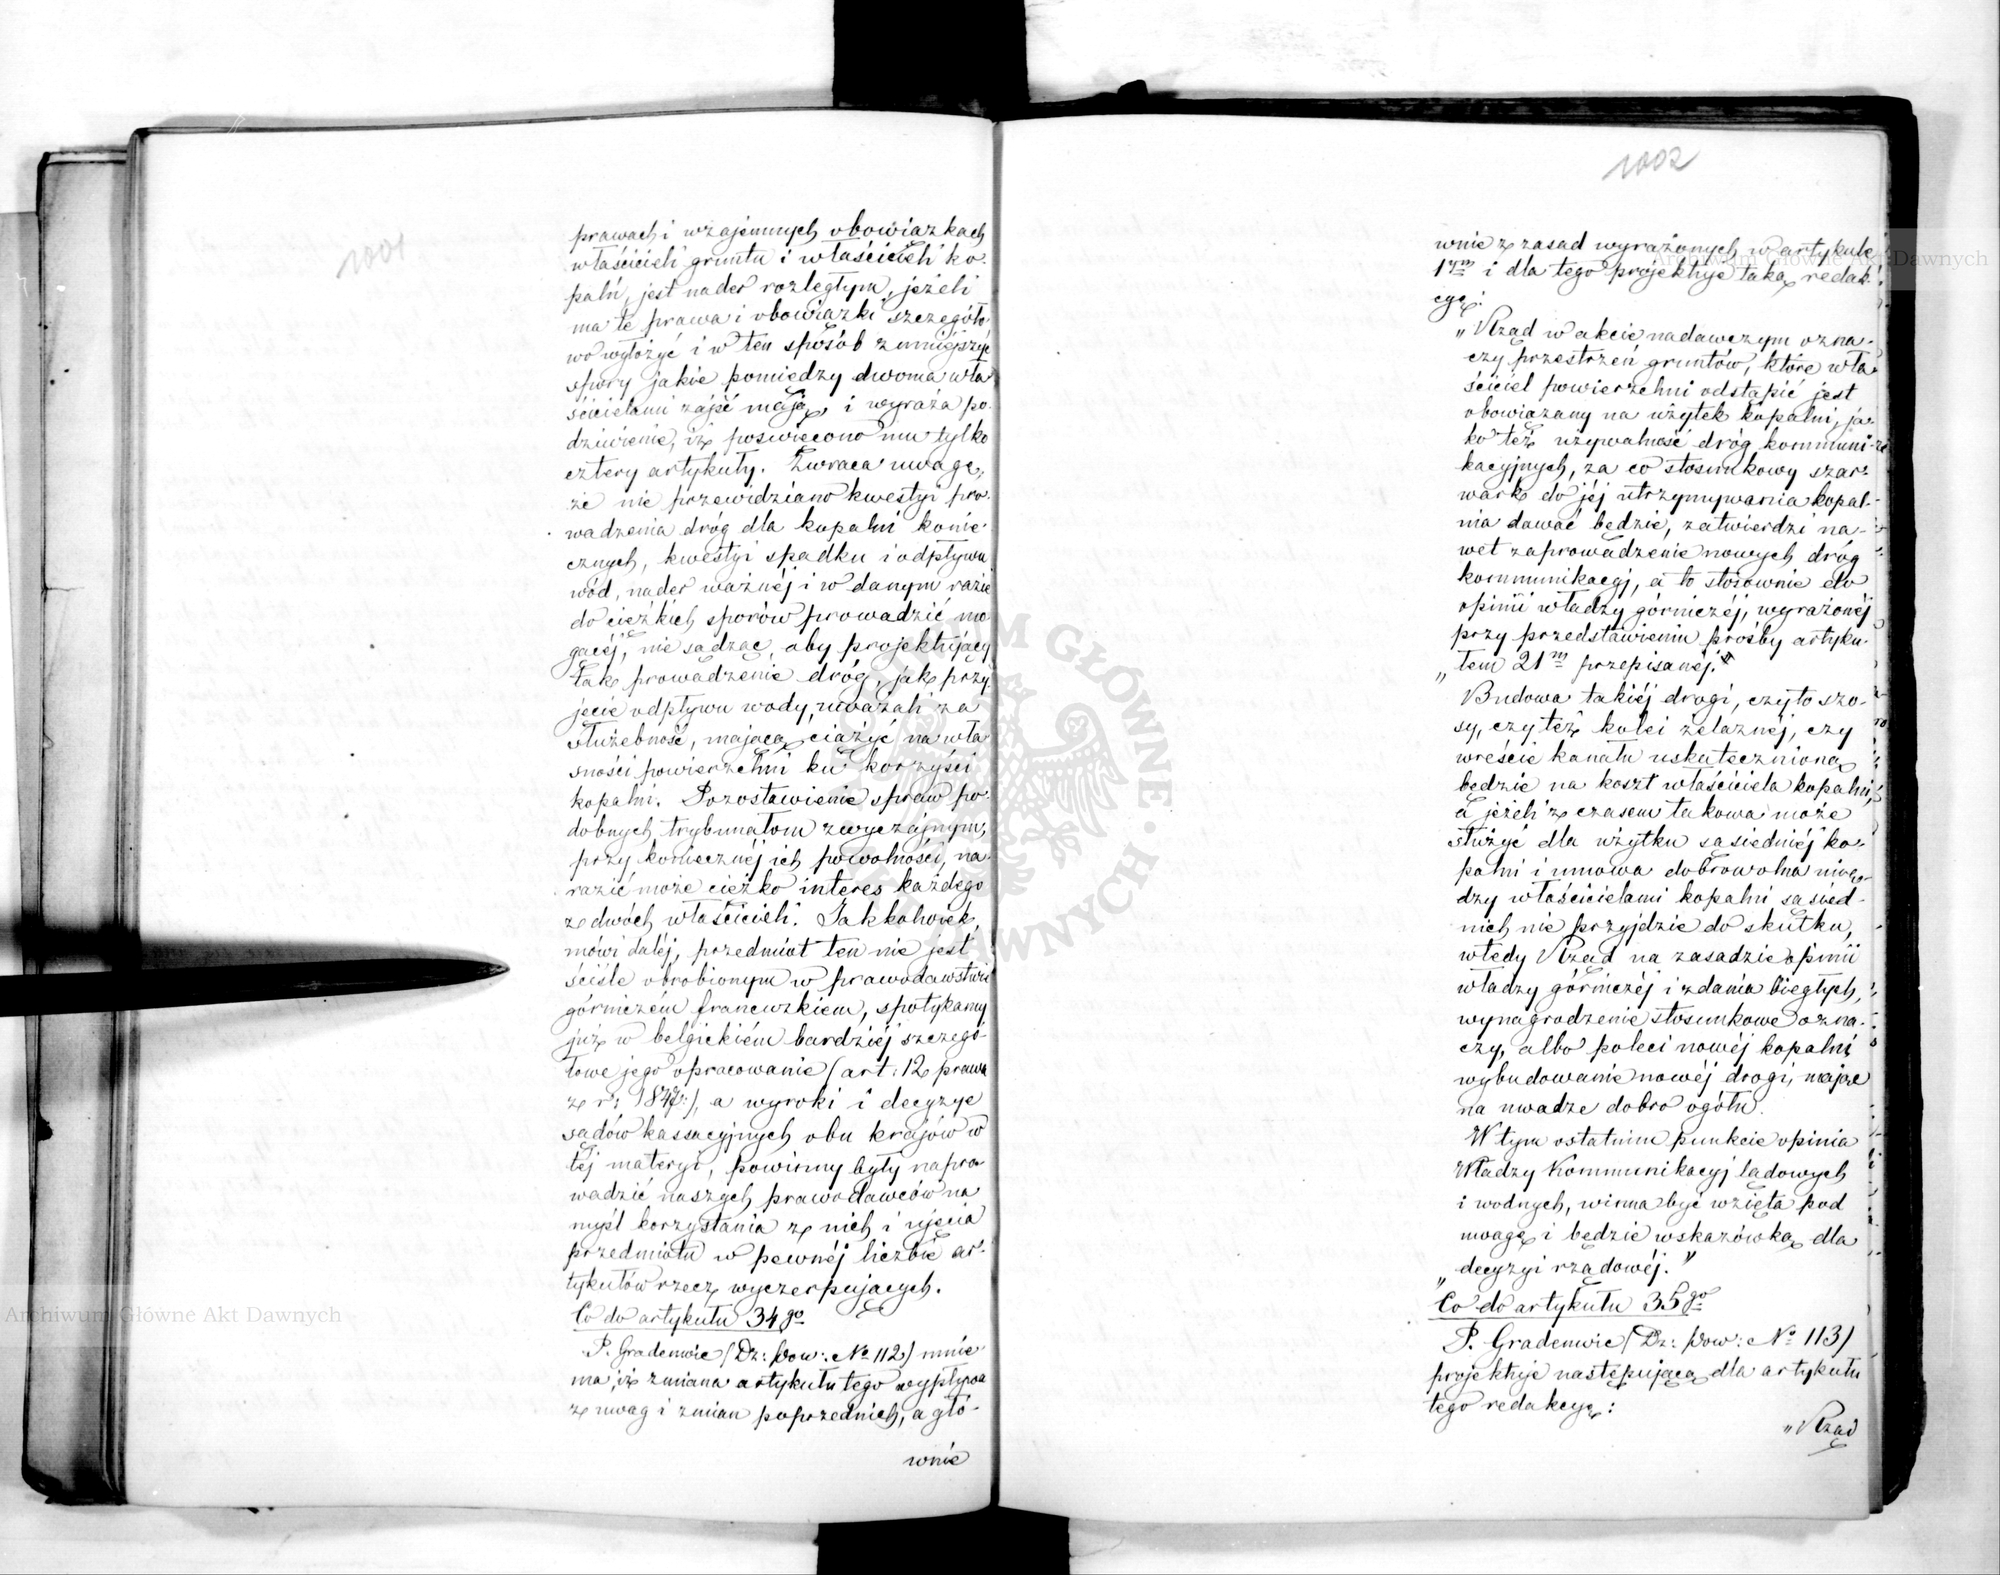 1001
prawach i wzajemnych obowiązkach
właścicieli gruntu i właścicieli ko-
palń, jest nader rozległym, jeżeli
ma te prawa i obowiązki szczegóło-
wo wyłożyć i w ten sposób zmniejszyć
spory jakie pomiędzy dwoma wła-
ścicielami zajść mają, i wyraża po-
dziwienie, iż poswięcono mu tylko
cztery artykuły. Zwraca uwagę,
że nie przewidziano kwestyi pro-
wadzenia dróg dla kopalni konie-
cznych, kwestyi spadku i odpływu
wód, nader ważnéj i w danym razie
do ciężkich sporów prowadzić mo-
gącéj, nie sądząc, aby projektujący
tak prowadzenie dróg, jak przy-
jęcie odpływu wody, uważali za
służebność, mającą ciążyć na wła-
sności powierzchni ku korzyści
kopalni. Pozostawienie spraw po-
dobnych trybunałom zwyczajnym,
przy koniecznéj ich powolności, na-
razić może ciężko interes każdego
z dwóch właścicieli. Jakkolwiek,
mówi daléj, przedmiot ten nie jest
ściśle obrobionym w prawodawstwie
górniczém francuzkiem, spotykamy
już w belgickiém bardziéj szczegó-
łowe jego opracowanie (art: 12 prawa
z r: 1837:), a wyroki i decyzye
sądów kassacyjnych obu krajów w
téj materyi, powinny były napro-
wadzić naszych prawodawców na
myśl korzystania z nich i ujęcia
przedmiotu w pewnéj liczbie ar-
tykułów rzecz wyczerpujących.
Co do artykułu 34go
P. Gradenwic (Dz: pow: No 112) mnie-
ma, iż zmiana artykułu tego wypływa
z uwag i zmian poprzednich, a głó-
wnie
1002
wnie z zasad wyrażonych w artykule
1ym i dla tego projektuje taką redak-
cyę:
„Rząd w akcie nadawczym ozna-
czy przestrzeń gruntów, które wła-
ściciel powierzchni odstąpić jest
obowiązany na użytek kopalni, ja-
ko też używalność dróg kommuni-
kacyjnych, za co stosunkowy szar-
wark do jéj utrzymywania kopal-
nia dawać będzie, zatwierdzi na-
wet zaprowadzenie nowych dróg
kommunikacyj, a to stósownie do
opinii władzy górniczéj, wyrażonéj
przy przedstawieniu prośby artyku-
„łem 21m przepisanéj."
Budowa takiéj drogi, czy to szo-
sy, czy też kolei żelaznéj, czy
wreście kanału uskutecznioną
będzie na koszt właściciela kopalni,
a jeżeli z czasem takowa może
służyć dla użytku sąsiedniéj ko-
palni i umowa dobrowolna mię-
dzy właścicielami kopalni sąsied-
nich nie przyjdzie do skutku,
wtedy Rząd na zasadzie opinii
władzy górniczéj i zdania biegłych,
wynagrodzenie stosunkowe ozna-
czy, albo poleci nowéj kopalni
wybudowanie nowéj drogi, mając
na uwadze dobro ogółu.
W tym ostatnim punkcie opinia
Władzy Kommunikacyj lądowych
i wodnych, winna być wzięta pod
uwagę i będzie wskazówką dla
„decyzyi rządowéj."
Co do artykułu 35go
P. Gradenwic (Dz: pow: No 113)
projektuje następującą dla artykułu
tego redakcyę:
„Rząd
Archiwum Główne Akt Dawnych
Archiwum Główne Akt Dawnych